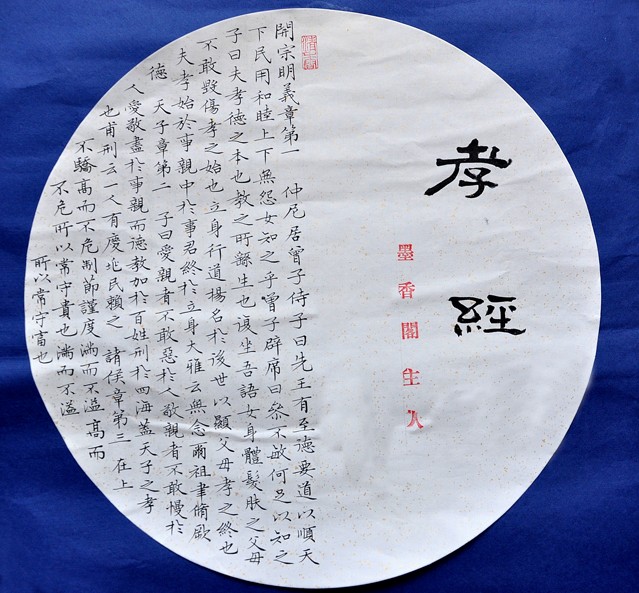 孝經
墨香閣主人
開宗明義章第一 仲尼居曾子侍子曰先王有至德要道以順天
下民用和睦上下無怨女知之乎曾子辟席曰參不敏何足以知之
子曰夫孝德之本也教之所繇生也復坐吾語女身體髮肤之父母
不敢毀傷孝之始也立身行道揚名於後世以顯父母孝之終也
夫孝始於事親中於事君終於立身大雅云無念爾祖聿脩厥
德 天子章第二 子曰愛親者不敢惡於人敬親者不敢慢於
人愛敬盡於事親而德教加於百姓刑於四海蓋天子之孝
也甫刑云一人有慶兆民賴之 諸侯章第三 在上
不驕高而不危制節謹度滿而不溢高而
不危所以常守貴也滿而不溢
所以常守富也